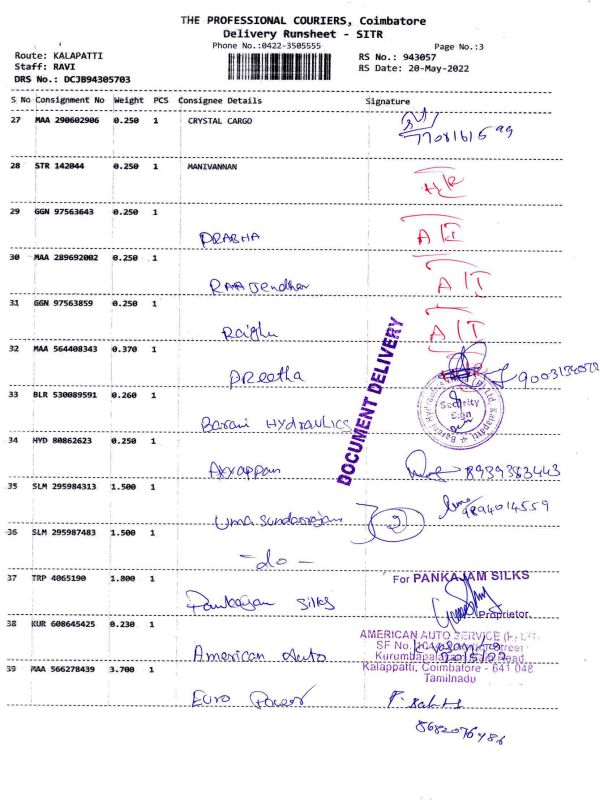 THE PROFESSIONAL COURIERS, Coimbatore
Delivery Runsheet - SITR
Phone No.:0422-3505555 Page No.:3
Route: KALAPATTI RS No.: 943057
Staff: RAVI RS Date: 20-May-2022
DRS No.: DCJB94305703
S No Consignment No Weight PCS Consignee Details Signature
27 MAA 290602906 0.250 1 CRYSTAL CARGO
28 STR 142044 0.250 1 MANIVANNAN
29 GGN 97563643 0.250 1
PRABHA
30 MAA 289692002 0.250 1
Raajendher A/I
31 GGN 97563859 0.250 1
Raighu A/I
32 MAA 564408343 0.370 1
Preetha
DOCUMENT DELIVERY
33 BLR 530089591 0.260 1
Security
Sign
Barani Hydraulics
34 HYD 80862623 0.250 1
Ayyappan 8939383443
35 SLM 295984313 1.500 1
Uma Sundarrajan 2 9894014559
36 SLM 295987483 1.500 1
-do-
37 TRP 4065190 1.800 1
For PANKAJAM SILKS
Pankajam Silks
Proprietor
38 KUR 608645425 0.230 1
AMERICAN AUTO SERVICE
SF No.
American Auto
39 MAA 566278439 3.700 1
Kalappatti, Coimbatore - 641 048
Tamilnadu
Euro Power